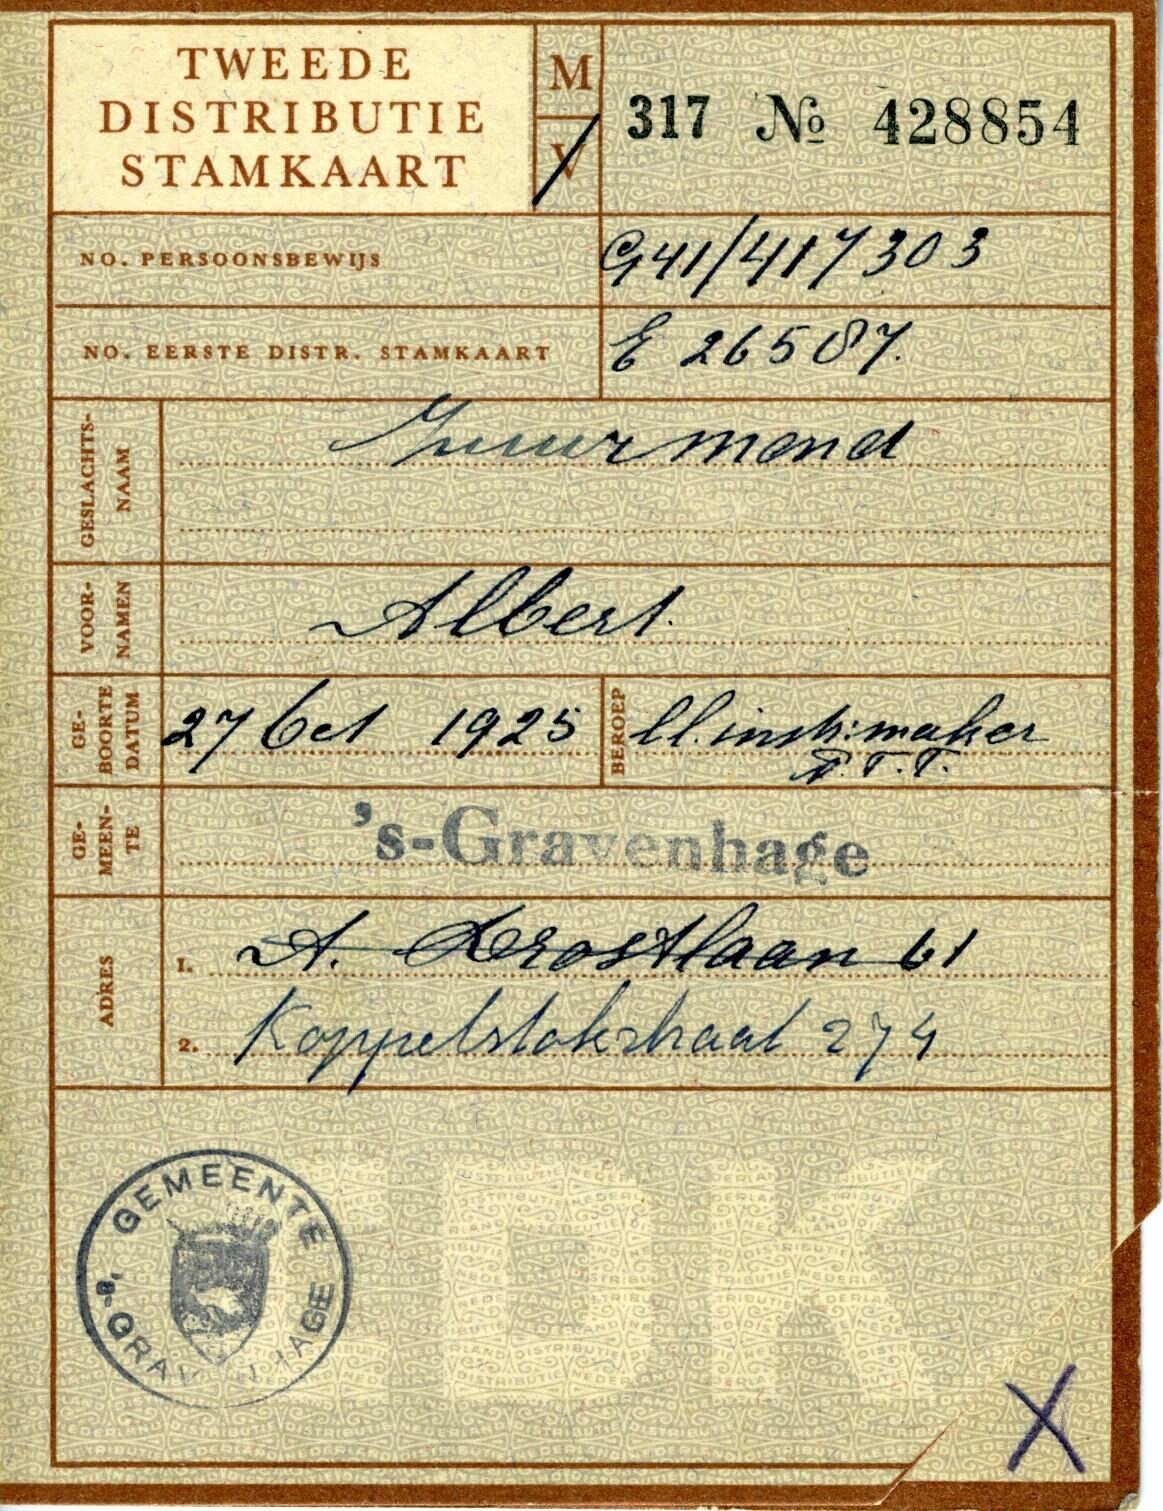 TWEEDE
DISTRIBUTIE
STAMKAART
M
V
317 No 428854
NO. PERSOONSBEWIJS
G41/417303
NO. EERSTE DISTR. STAMKAART
E 26587.
GESLACHTS-
NAAM
Zuurmond
VOOR-
NAMEN
Albert.
GE-
BOORTE
DATUM
27 Oct 1925
BEROEP
instr.maker
P.T.T.
GE-
MEEN-
TE
's-Gravenhage
ADRES
1. A. Drostlaan 61
2. Koppelstokstraat 274
GEMEENTE
's-GRAVENHAGE
IDK
X